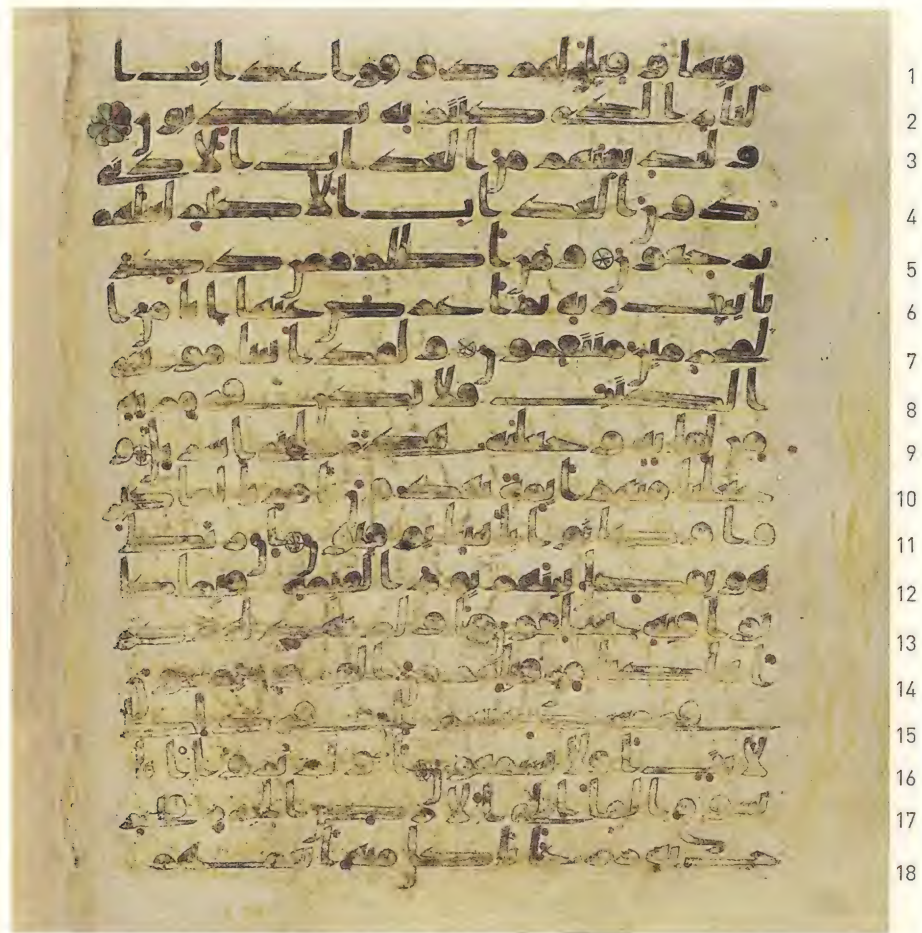 فيها وقيل لهم ذوقوا عذاب النا
ر الذي كنتم به تكذبون
ولنذيقنهم من العذاب الادنى
دون العذاب الاكبر لعلهم
يرجعون ومن اظلم ممن ذكر
بايت ربه ثم اعرض عنها انا من
المجرمين منتقمون ولقد اتينا موسى
الكتب فلا تكن في مرية
من لقائه وجعلنه هدى لبني اسريل و
جعلنا منهم ائمة يهدون بامرنا لما صبر
وا وكانوا بايتنا يوقنون ان ربك
هو يفصل بينهم يوم القيمة فيما كا
نوا فيه يختلفون اولم يهد لهم كم
اهلكنا من قبلهم من القرون
يمشون في مسكنهم ان في ذلك
لايت افلا يسمعون اولم يروا انا
نسوق الما الى الارض الجرز فنخر
ج به زرعا تاكل منه انعمهم
1
2
3
4
5
6
7
8
9
10
11
12
13
14
15
16
17
18